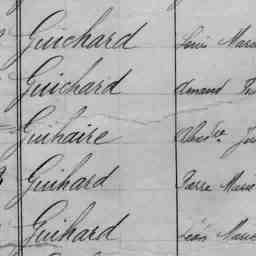 Guichard Louis Marc
Guichard Amand
Guihaire
Guihard Pierre Marie
Guihard Léon Marie